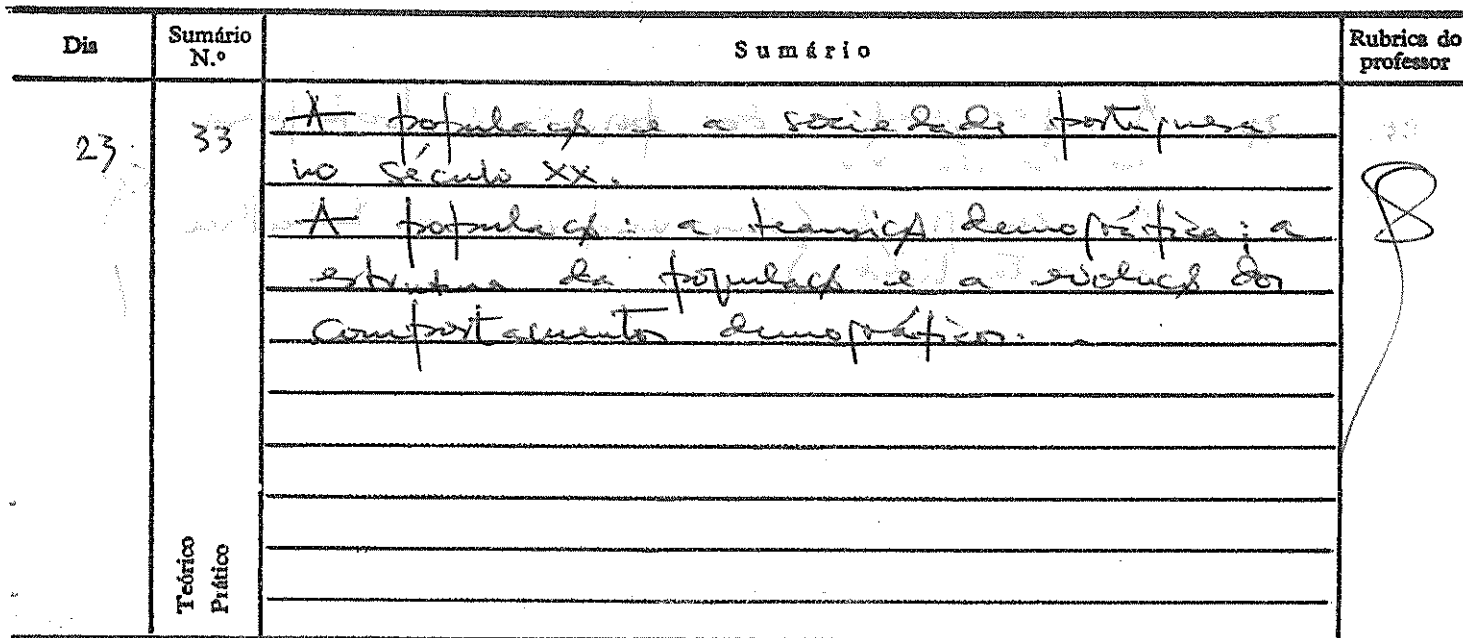 Dia Sumário N.º Sumário Rubrica do professor
23 33 A população e a sociedade portuguesa
no século XX.
A população: a transição demográfica: a
estrutura da população e a evolução dos
comportamentos demográficos.
Teórico
Prático